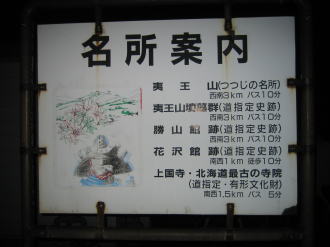 名所案内
夷王山(つつじの名所)
西南3km バス10分
夷王山墳墓群(道指定史跡)
西南3km バス10分
勝山館跡(道指定史跡)
西南3km バス10分
花沢館跡(道指定史跡)
南西1km 徒歩10分
上国寺・北海道最古の寺院
(道指定・有形文化財)
南西1.5km バス 5分